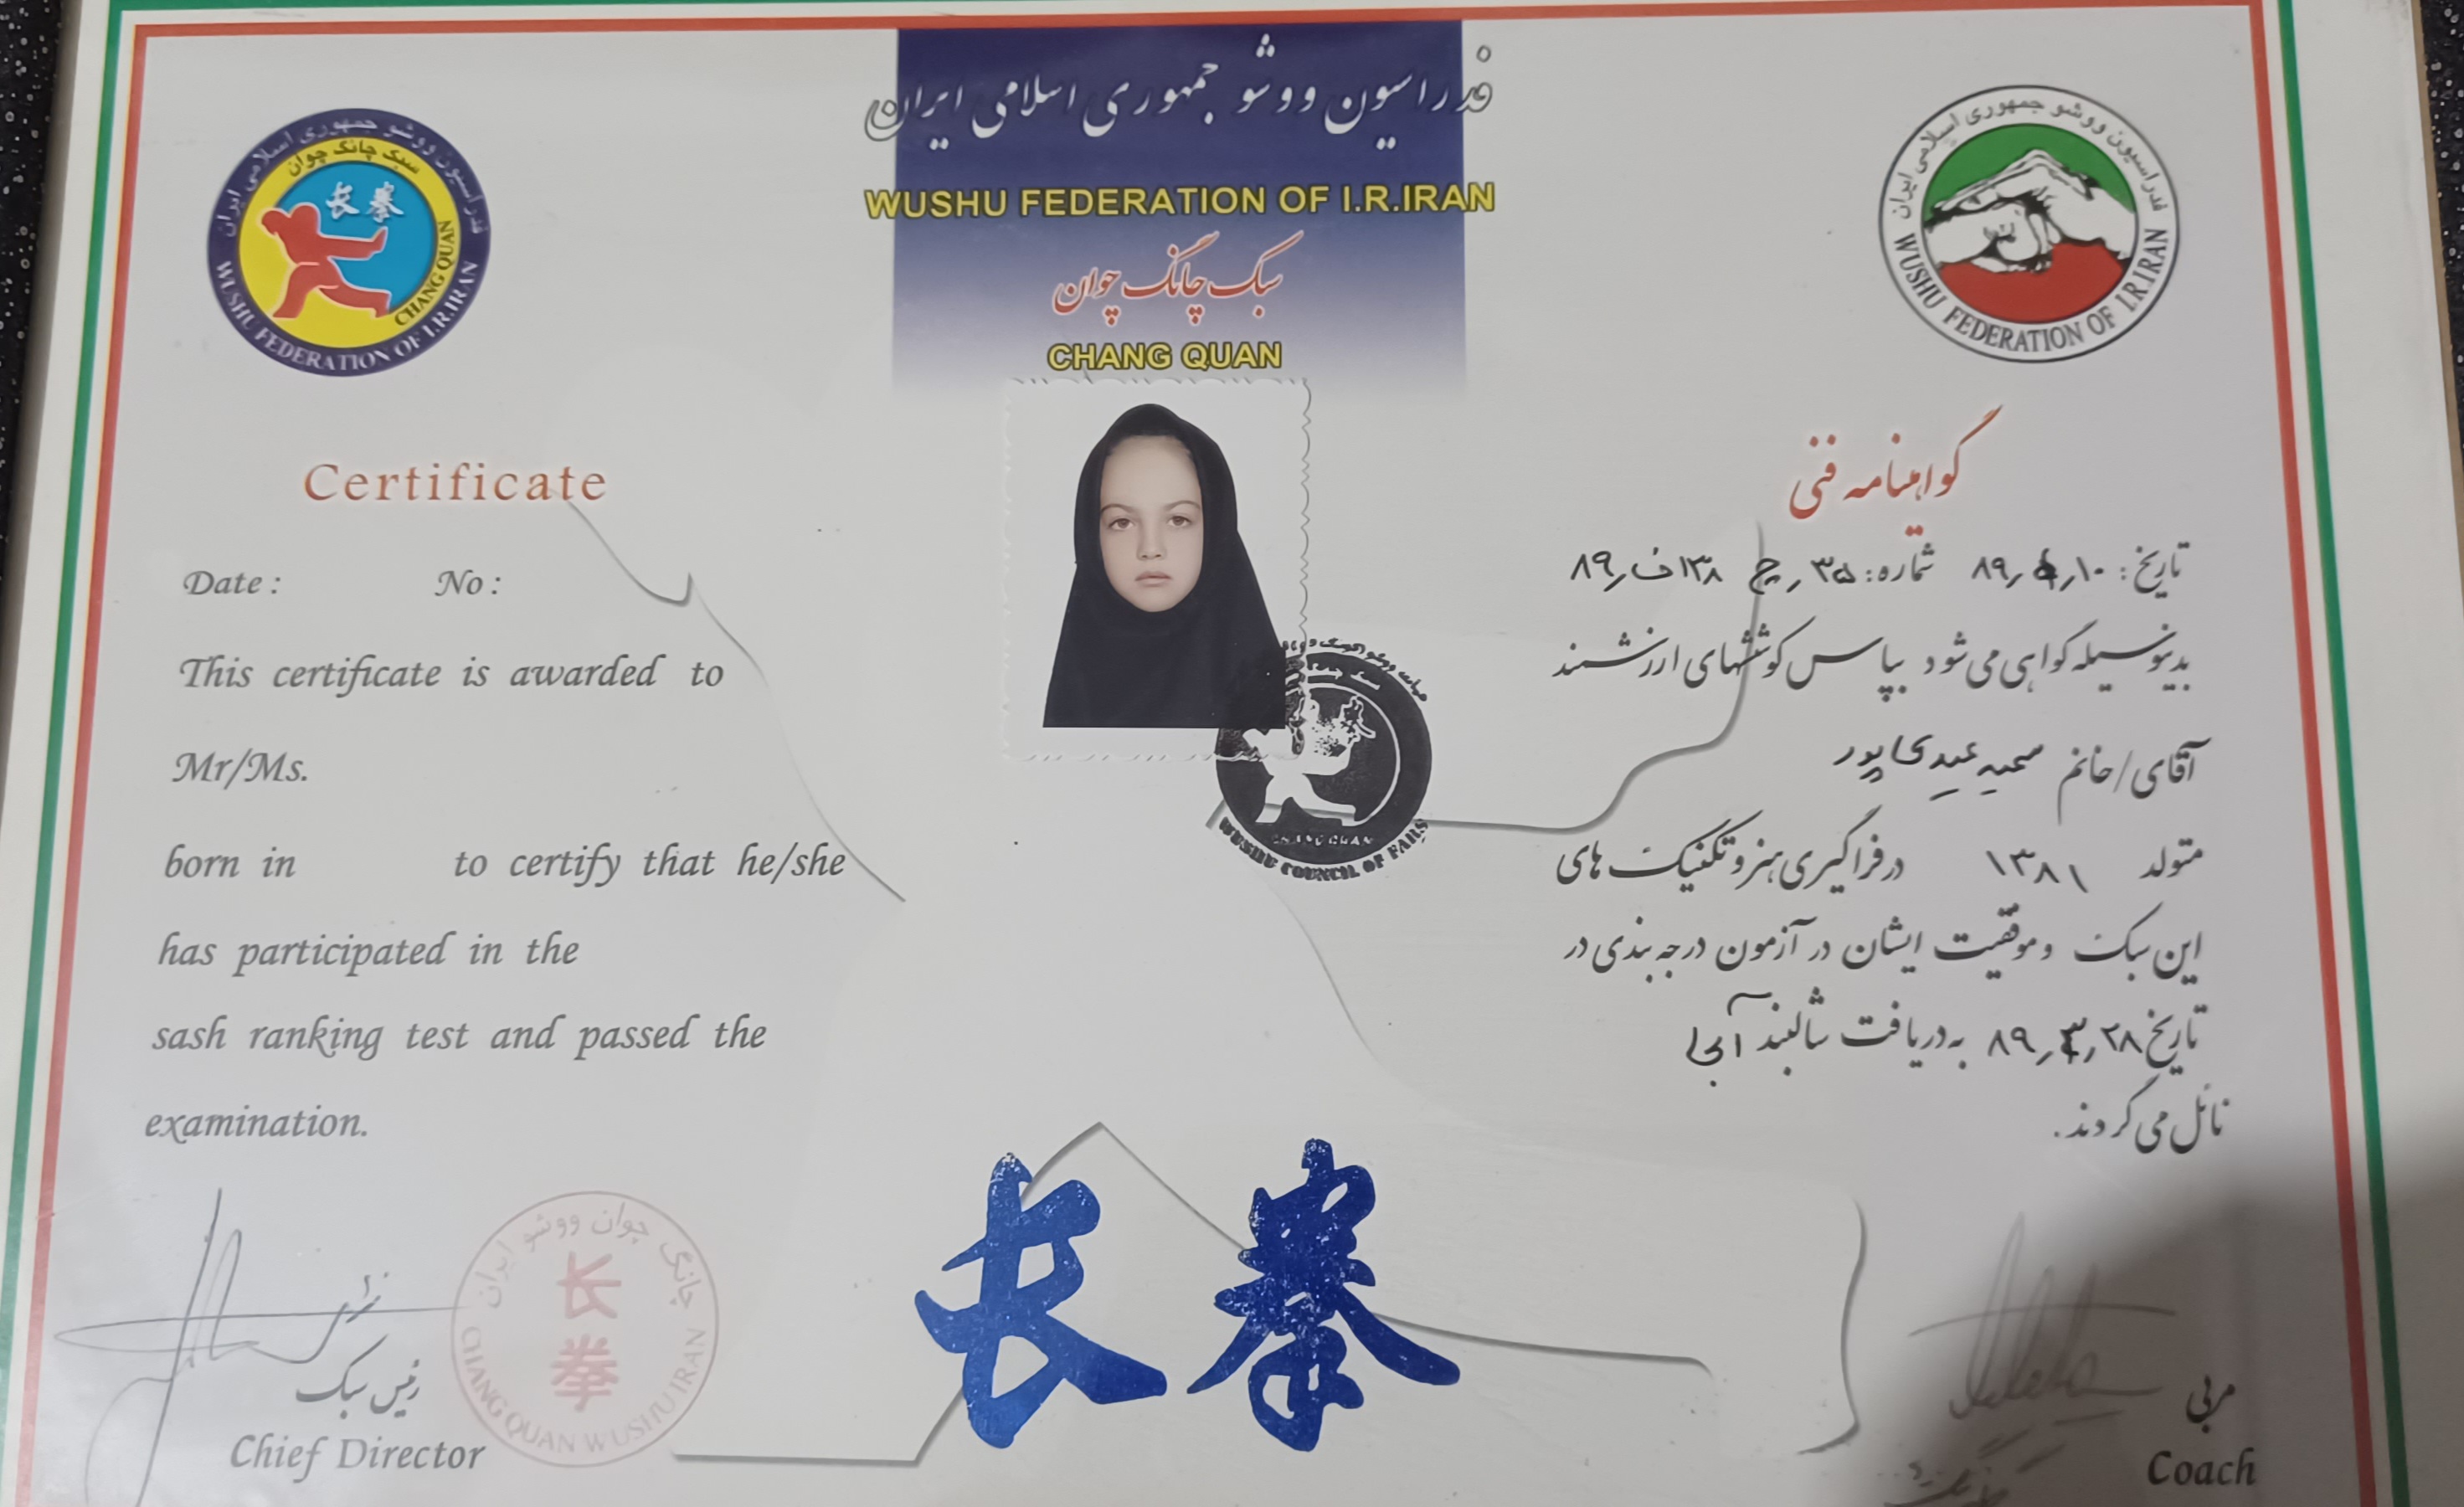 فدراسیون ووشو جمهوری اسلامی ایران
WUSHU FEDERATION OF I.R.IRAN
سبک چانگ چوان
CHANG QUAN
فدراسیون ووشو جمهوری اسلامی ایران
سبک چانگ چوان
长拳
CHANG QUAN
WUSHU FEDERATION OF I.R.IRAN
فدراسیون ووشو جمهوری اسلامی ایران
WUSHU FEDERATION OF I.R.IRAN
گواهینامه فنی
تاریخ: ۸۹٫ ٫۱۰ شماره: ۳۵٫ چ ۱۳۸ ف٫ ۸۹
بدینوسیله گواهی می شود بپاس کوششهای ارزشمند
آقای/خانم سمیه عیدی پور
متولد ۱۳۸۱ درفراگیری هنر و تکنیک های
این سبک و موفقیت ایشان در آزمون درجه بندی در
تاریخ ۸۹٫ ٫۲۸ به دریافت شالبند آبی
نائل می گردند.
Certificate
Date : No :
This certificate is awarded to
Mr/Ms.
born in to certify that he/she
has participated in the
sash ranking test and passed the
examination.
CHANG QUAN
WUSHU COUNCIL OF FARS
长拳
رئیس سبک
Chief Director
چانگ چوان ووشو ایران
长
拳
CHANG QUAN WUSHU IRAN
مربی
Coach